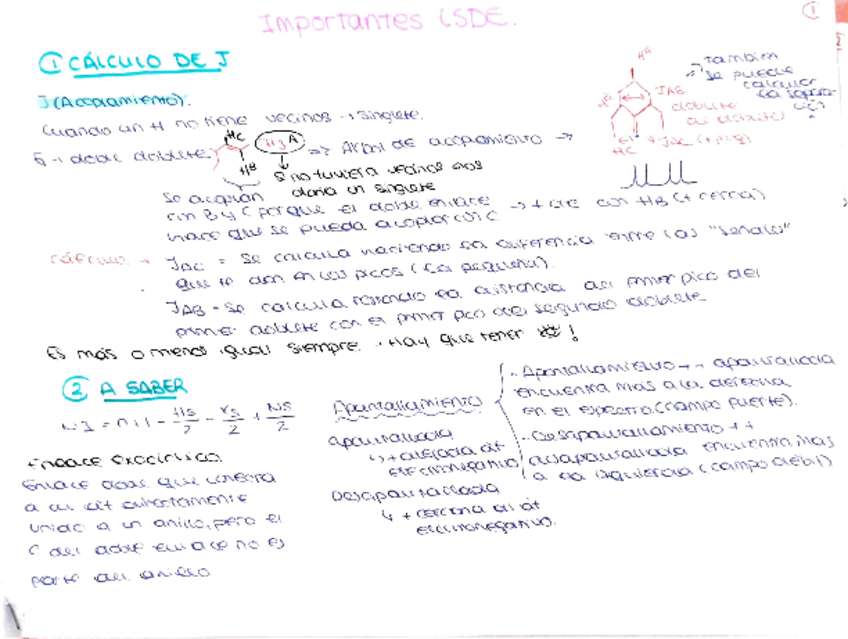 Importantes LSDE.
①
① CÁLCULO DE J
J (Acoplamiento).
Cuando un H no tiene vecinos → singlete.
Ej → doble doblete
HC
H3A
HB
=> Árbol de acoplamiento →
Si no tuviera vecinos nos
daría un singlete
Se acoplan
con B y C porque el doble enlace
hace que se pueda acoplar con C
→ + cte con HB (+ cerca)
también
se puede
calcular
JAB
doblete
del doblete
HC
JAC (+ peq)
Cálculo → JAC = Se calcula haciendo la diferencia entre las "señales"
que te dan en los picos (la pequeña).
JAB = Se calcula restando la distancia del primer pico del
primer doblete con el primer pico del segundo doblete
Es más o menos igual siempre. Hay que tener !
② A SABER
Enlace exocíclico.
Enlace doble que conecta
a un át directamente
unido a un anillo, pero el
C del doble enlace no es
parte del anillo
Apantallamiento
apantallada
↳ + alejada át
electronegativo
Desapantallada
↳ + cercana al át
electronegativo.
- Apantallamiento → apantallada
encuentra más a la derecha
en el espectro (campo fuerte).
- Desapantallamiento →
desapantallada encuentra más
a la izquierda (campo débil)